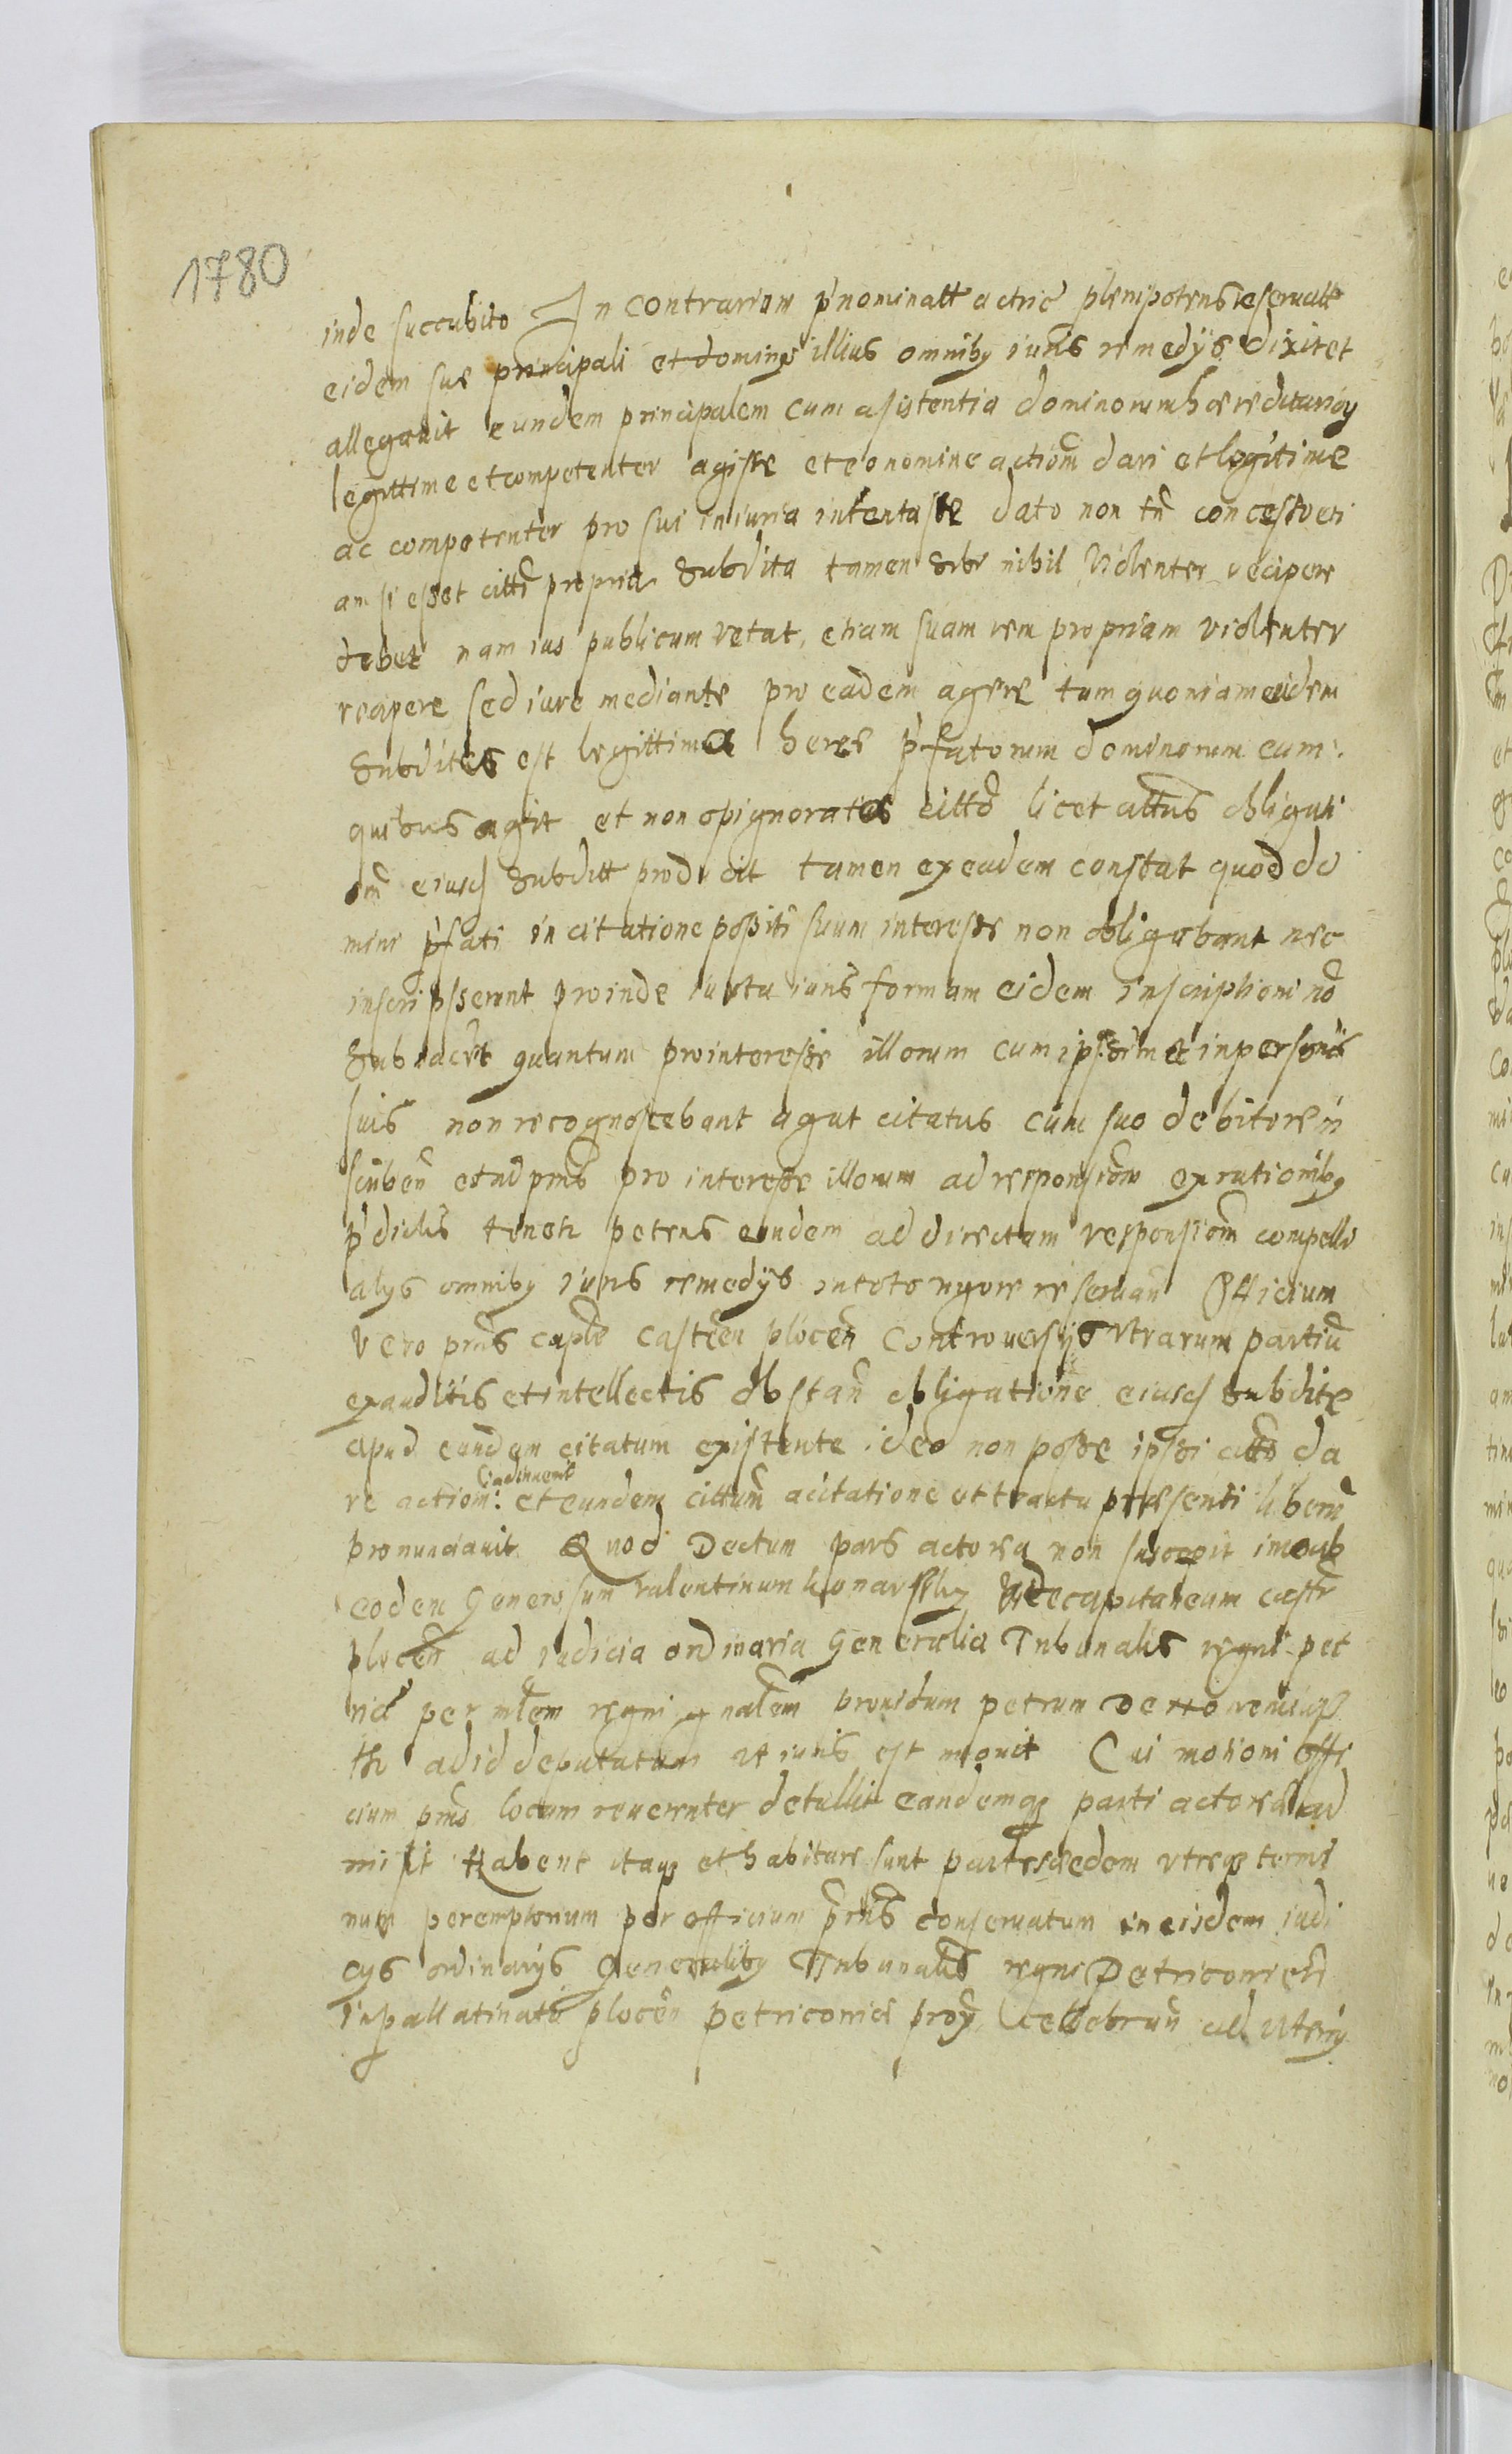 1780
inde succubito In contrarium p'nominatt actric plenipotens reservatt
eidem sue principali et domino illius omnibq iuris remedijs dixit et
allegavit eundem principalem cum asistentia dominorum hæreditarioq
legittime et competenter agisse et eo nomine actiom dari et legitime
ac competenter pro sui iniuria intentasse dato non tn concesso eti
am si esset citti propria subdita tamen nihil violenter recipere
debet nam ius publicum vetat, etiam suam rem propriam violenter
recipere sed iure mediante pro eadem agere tum quoniam eidem
subdites est legittima heres p'fatorum dominorum cum
quibus agit et non opignoratos citto licet cittus obligati
om eiusd subditt producit tamen ex eadem constat quod do
mini p'fati in citatione positi suum interesse non obligabant nec
inscripsserunt proinde iuxta iuris formam eidem inscriptioni no
subiacet quantum pro interesse illorum cum ipsismet in personis
suis non recognoscebant agat citatus cum suo debitore in
scriben et ad pms pro interesse illorum ad responsiom ex rationibq
p'dictis teneti petens eundem ad directam responsiom compelli
alijs omnibq iuris remedijs in toto rigore reservan Officium
vero pms caple castren plocen controversijs vtrarum partiu
exauditis et intellectis obstan obligatione eiusd subdite
apud eundem citatum existente ideo non posse ipsi citto da
re actiom: et eundem cittum a citatione et tractu præsenti liberu
pronunciavit Quod Dectum pars actorea non suscepit imo ab
eodem Generosum valentinum vicecapitaneum castr
plocen ad iudicia ordinaria Generalia Tribunalis regni pet
ric per mlem regni gnalem providum petrum De
ad id deputatum vt iuris est movit Cui motioni offi
cium pms locum reverenter detullit eandemq parti actoreæ ad
misit Habent itaq et habiture sunt partes eedem vtreq termi
num peremptorium per officium prns conservatum in eisdem iudi
cijs ordinarijs Generalibq Tribunalis regni Petricovien
in pallatinatu plocen petricovie prox cellebrun ad